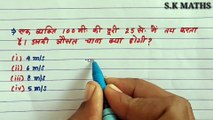 S.K MATHS
→ एक व्यक्ति 100 मी॰ की दूरी 25 से॰ में तय करता
है। उसकी औसत चाल क्या होगी?
(i) 4 m/s
(ii) 6 m/s
(iii) 8 m/s
(iv) 5 m/s